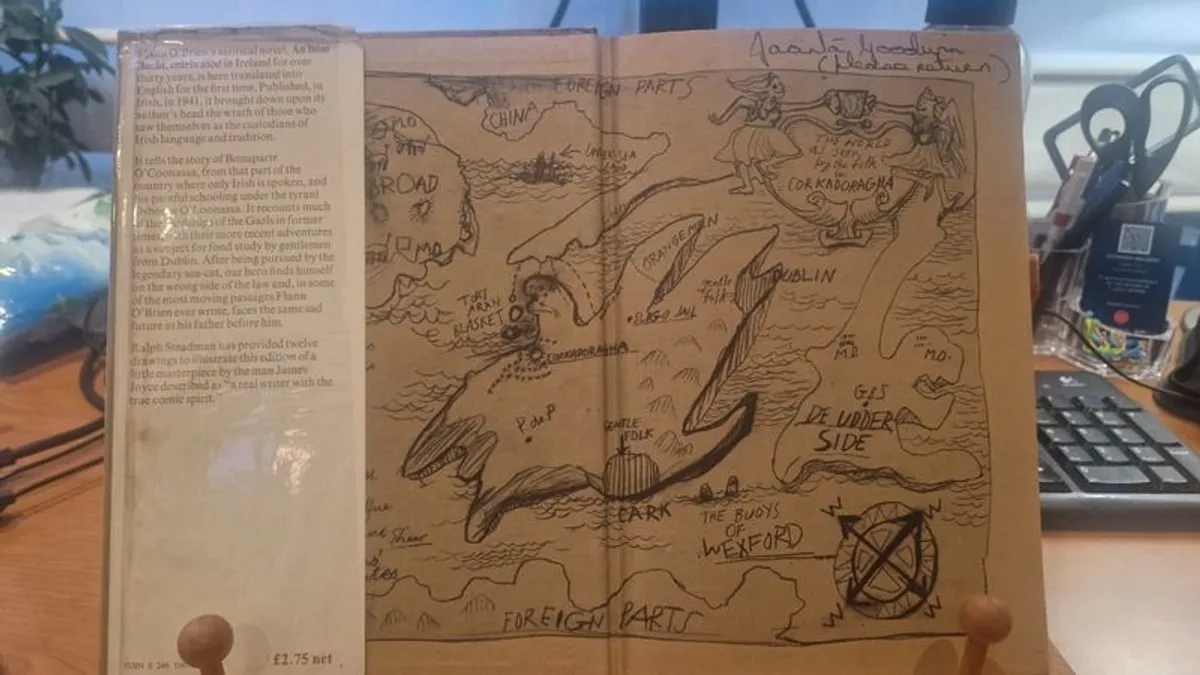 Flann O'Brien's satirical novel, An Béal
Bocht, celebrated in Ireland for over
thirty years, is here translated into
English for the first time. Published, in
Irish, in 1941, it brought down upon its
author's head the wrath of those who
saw themselves as the custodians of
Irish language and tradition.
It tells the story of Bonaparte
O'Coonassa, from that part of the
country where only Irish is spoken, and
his painful schooling under the tyrant
Osborne O'Loonassa. It recounts much
of the hardships of the Gaels in former
times, with their more recent adventures
as a subject for fond study by gentlemen
from Dublin. After being pursued by the
legendary sea-cat, our hero finds himself
on the wrong side of the law and, in some
of the most moving passages Flann
O'Brien ever wrote, faces the same sad
future as his father before him.
Ralph Steadman has provided twelve
drawings to illustrate this edition of a
little masterpiece by the man James
Joyce described as "a real writer with the
true comic spirit."
£2.75 net
Jacinta Goodwin
(Please return)
FOREIGN PARTS
CHINA
THE WORLD
as seen
by the folk
in
CORKADORAGHA
MO
ROAD
MO
ORANGEMEN
gentle
folk
DUBLIN
TORY
ARAN
BLASKET
SLIGO JAIL
CORKADORAGHA
M.D.
M.D.
G.B.S
DE UDDER
SIDE
P de P
GENTLE
FOLK
CARK
THE BUOYS
OF
WEXFORD
Shaw
W
W
W
W
FOREIGN PARTS